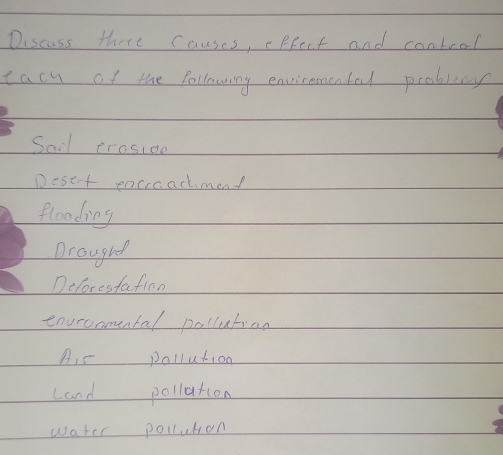 Discuss three causes, effect and control
each of the following enviremental problems
Soil erosion
Desert encroachment
flooding
Drought
Deforestation
environmental pollution
Air pollution
Land pollution
Water pollution